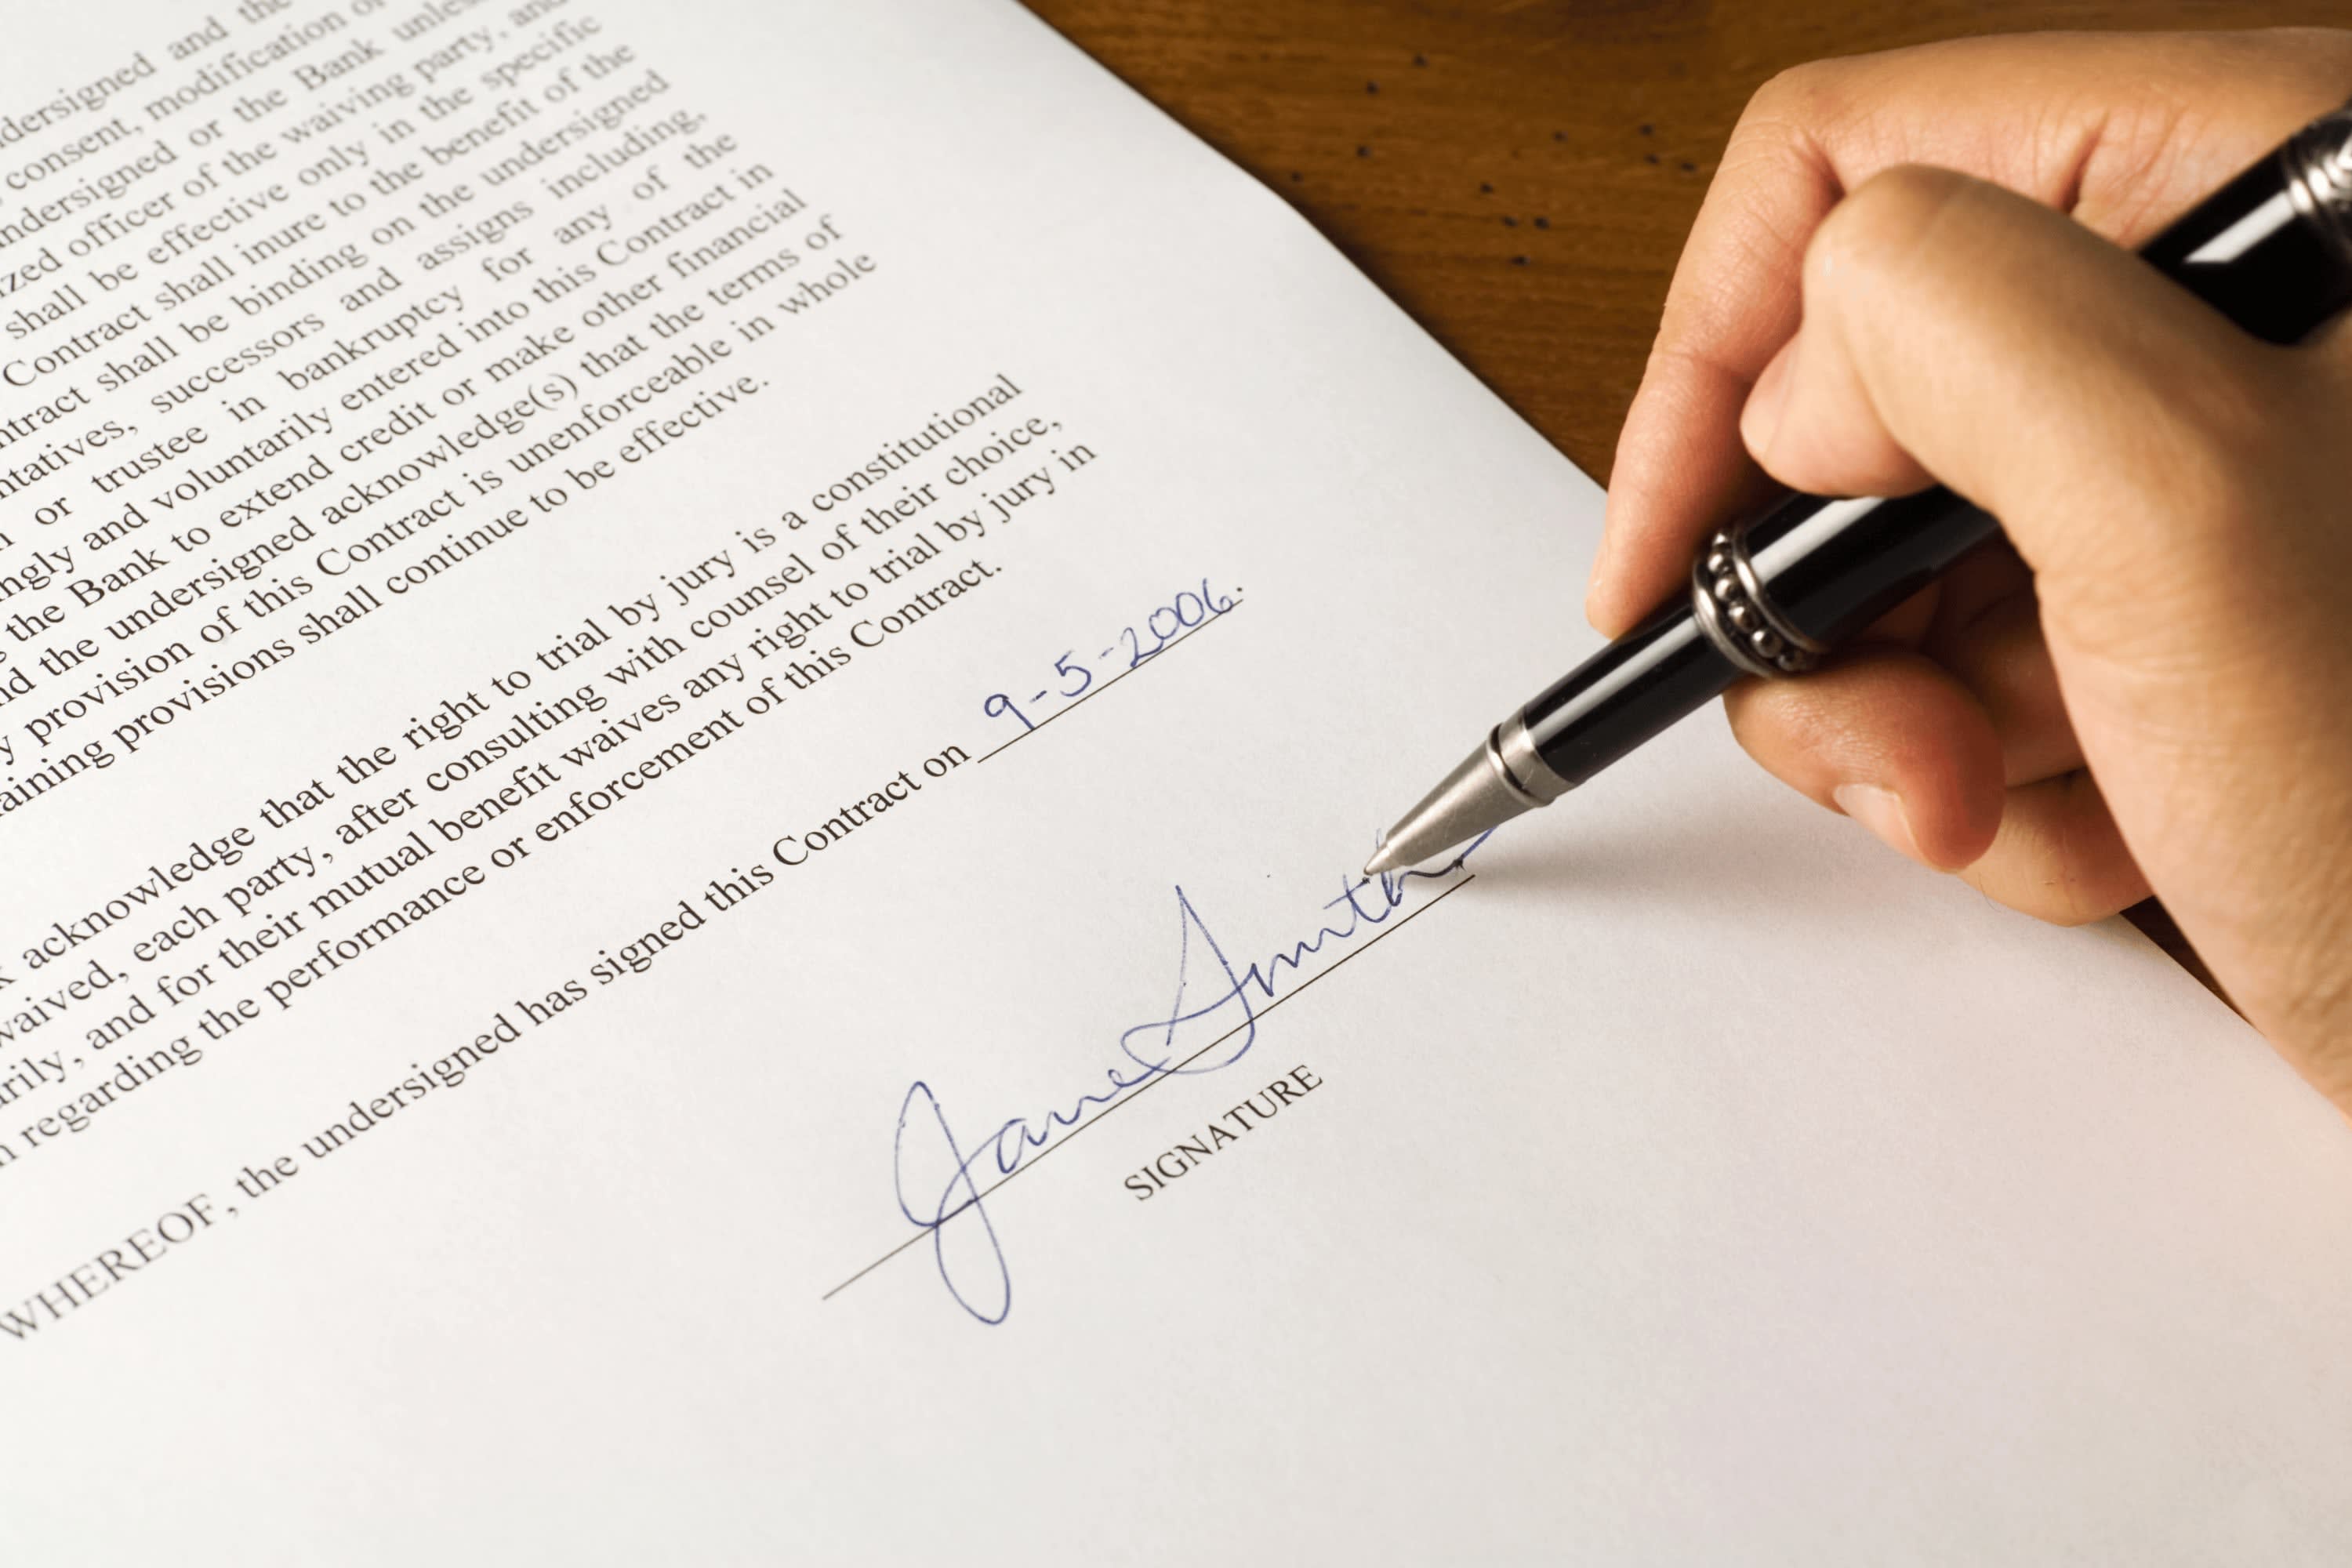 dersigned and the
consent, modification o
ndersigned or the Bank unless
zed officer of the waiving party, and
shall be effective only in the specific
Contract shall inure to the benefit of the
ntract shall be binding on the undersigned
ntatives, successors and assigns including,
or trustee in bankruptcy for any of the
ngly and voluntarily entered into this Contract in
the Bank to extend credit or make other financial
nd the undersigned acknowledge(s) that the terms of
y provision of this Contract is unenforceable in whole
aining provisions shall continue to be effective.
k acknowledge that the right to trial by jury is a constitutional
waived, each party, after consulting with counsel of their choice,
rily, and for their mutual benefit waives any right to trial by jury in
n regarding the performance or enforcement of this Contract.
WHEREOF, the undersigned has signed this Contract on 9-5-2006.
Jane Smith
SIGNATURE